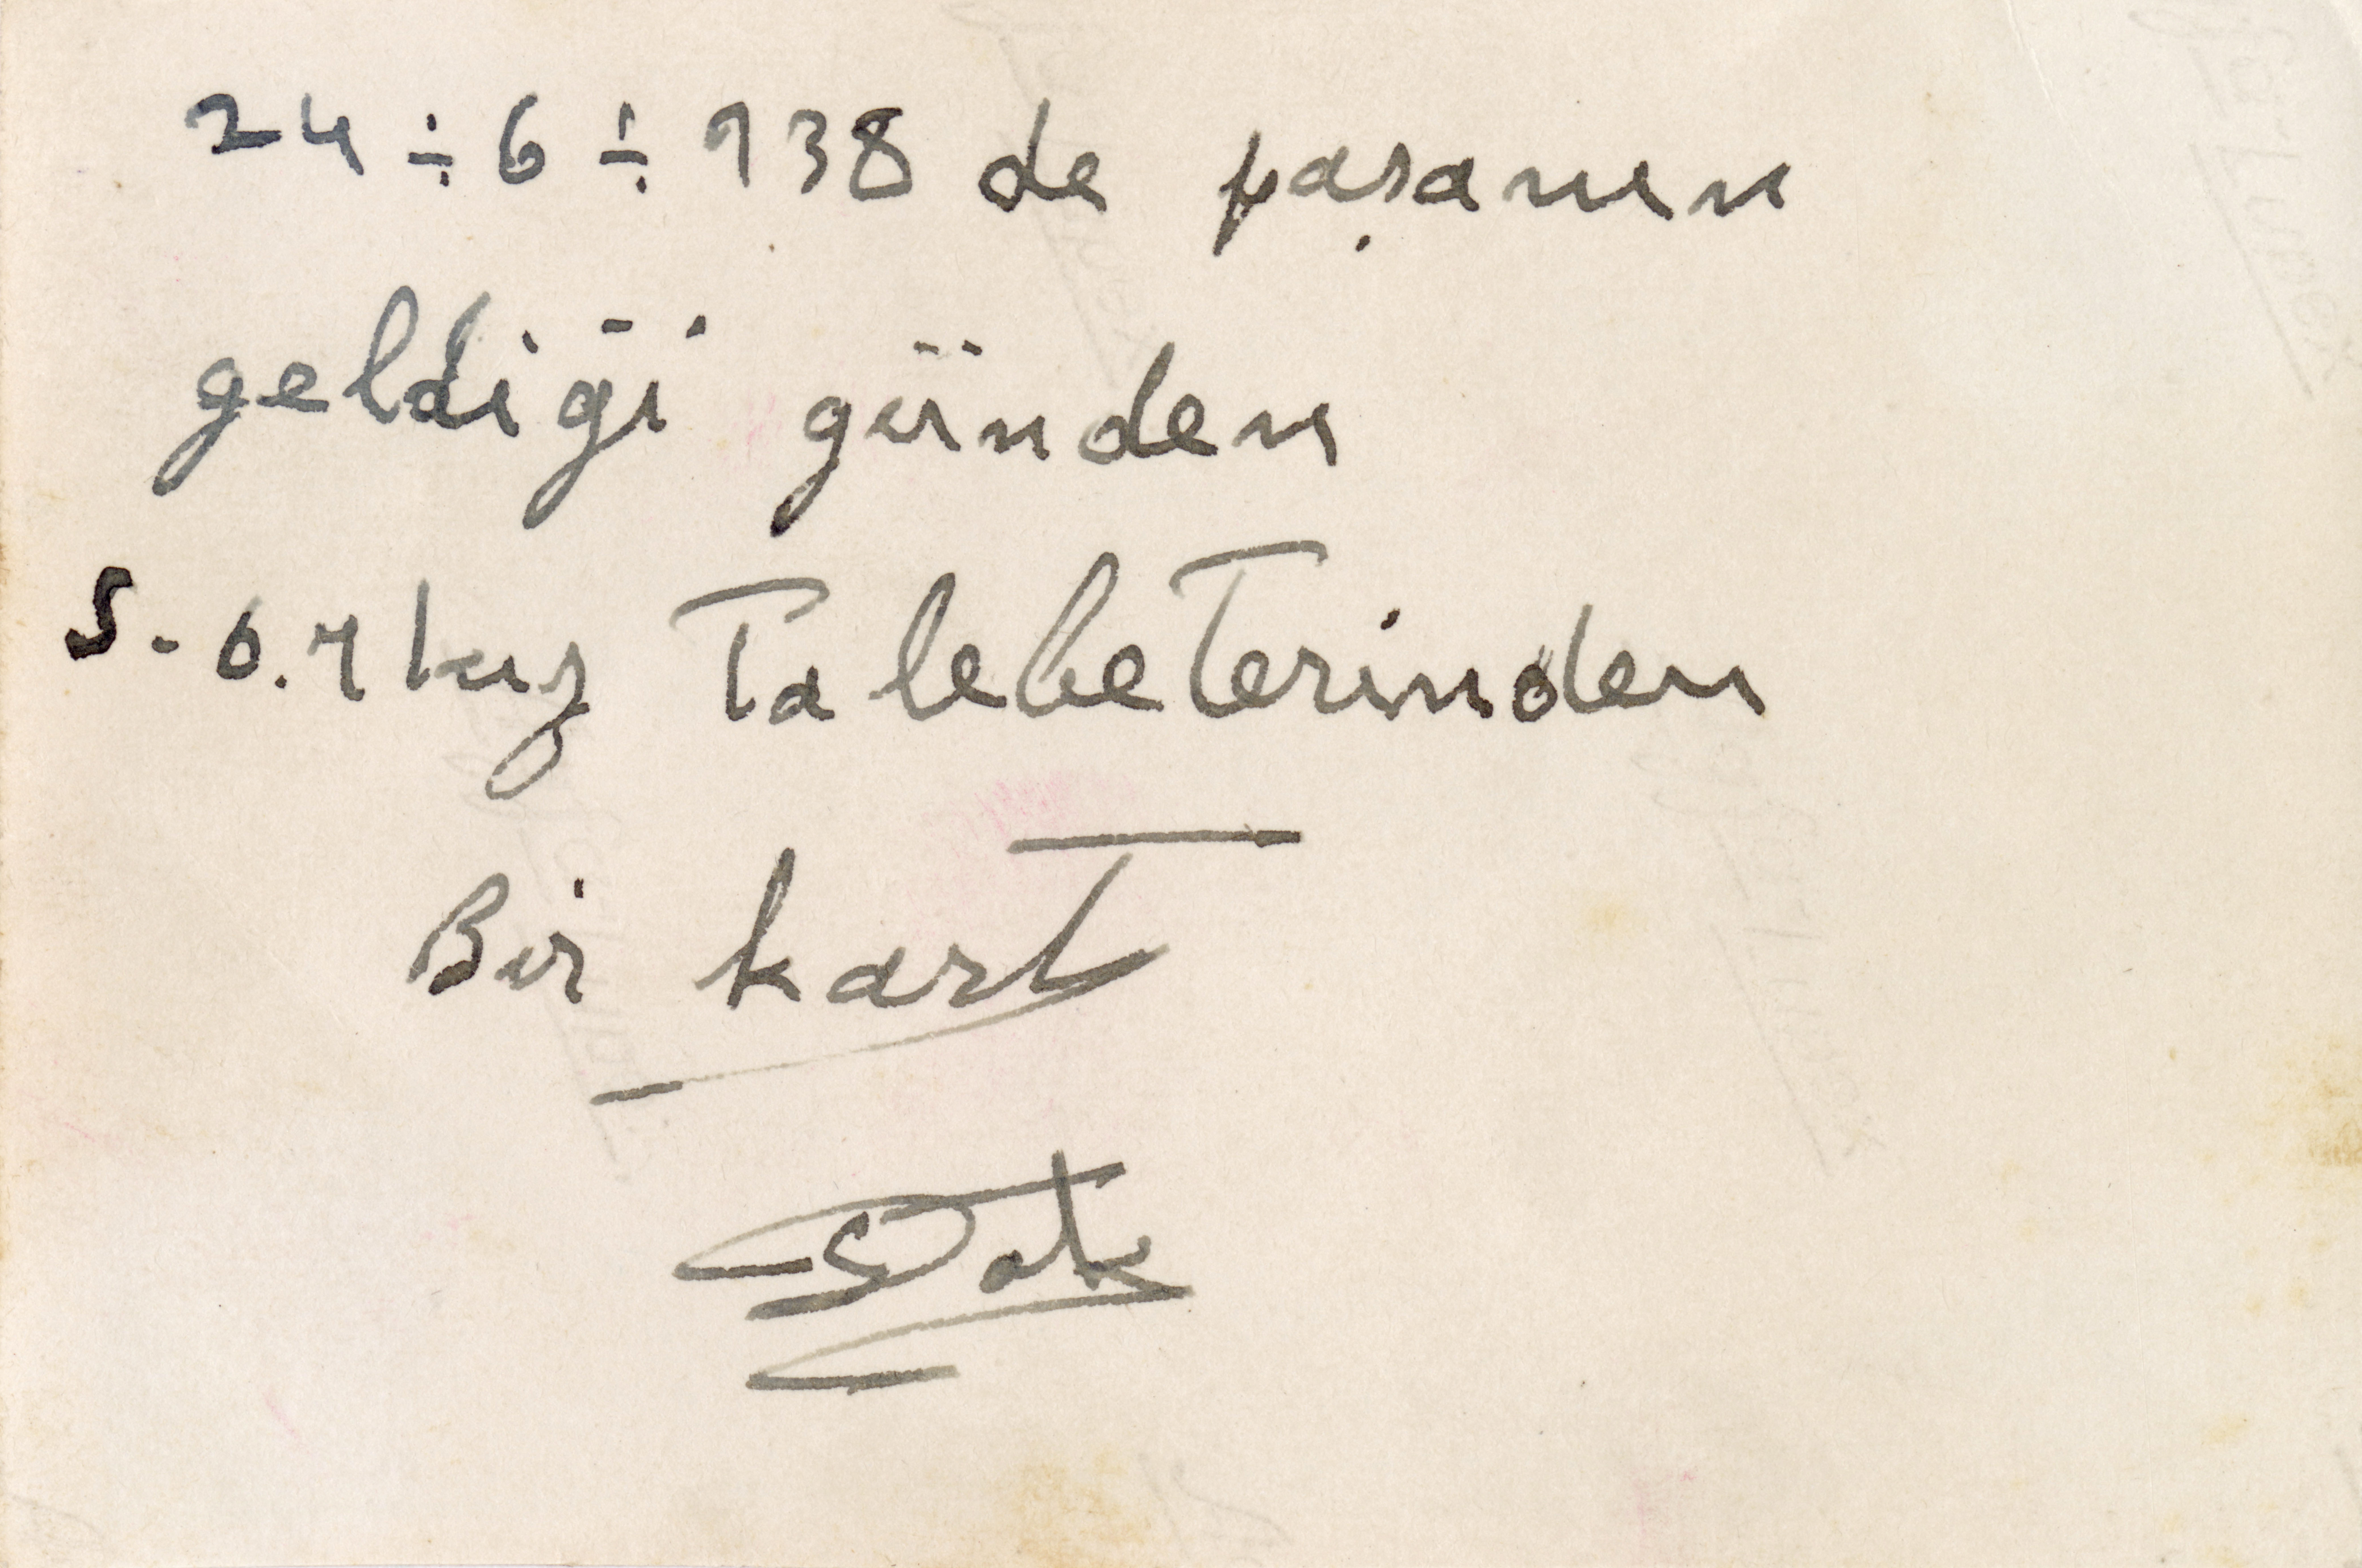 24÷6÷938 de paşanın
geldiği günden
5-6.7 kız Talebelerinden
Bir kart